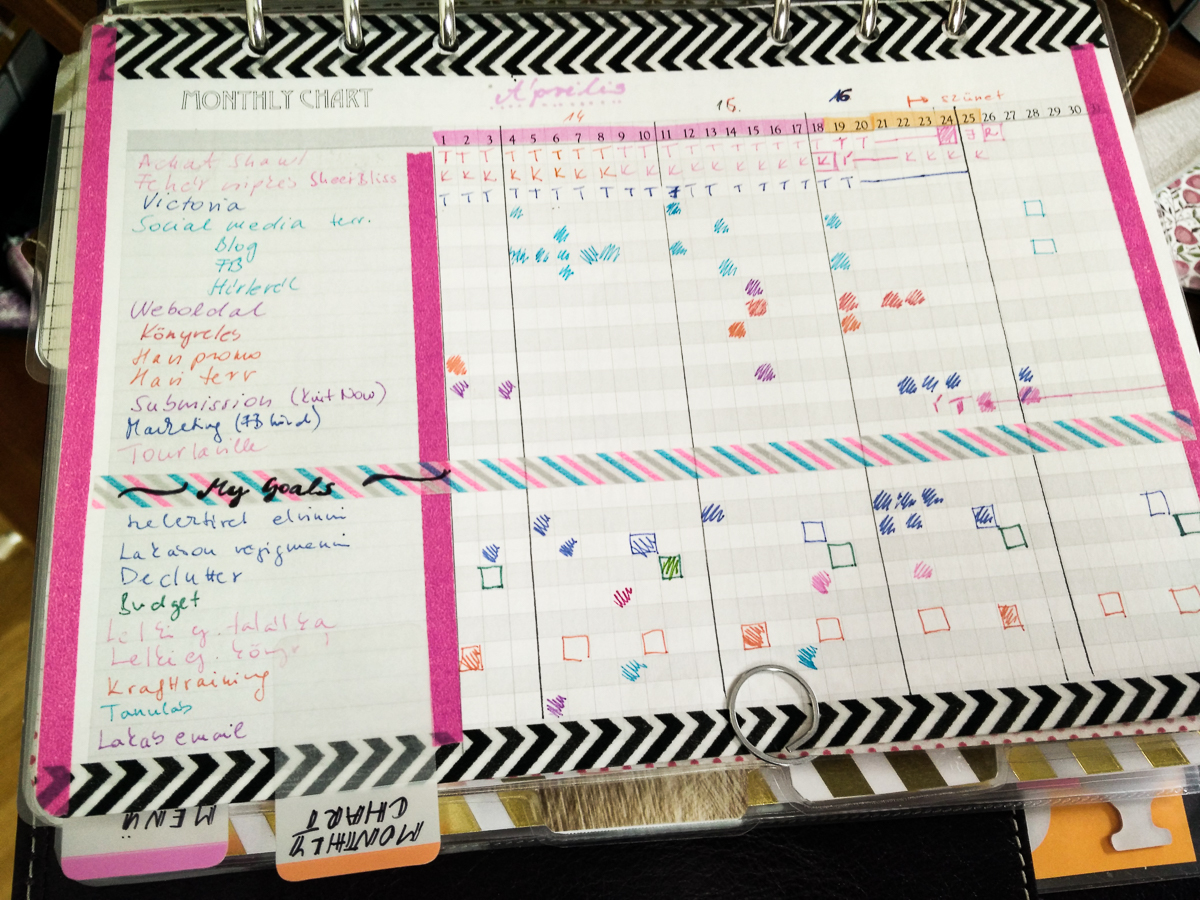 MONTHLY CHART Április
14 15. 16 szünet
1 2 3 4 5 6 7 8 9 10 11 12 13 14 15 16 17 18 19 20 21 22 23 24 25 26 27 28 29 30 31
Achat Shawl T T T T T T T T T T T T T T T T T T T T
Fehér csipkés SheerBliss K K K K K K K K K K K K K K K K K K K K K K
Victoria T T T T T T T T T T T T T T T T T
Social media terv.
Blog
FB
Hírlevél
Weboldal
Könyvelés
Havi promo
Havi terv
Submission (Knit Now)
Marketing (FB hird)
Tourlaville
My Goals
Lakáson végigmenni
Declutter
Budget
Lelki g.
Lelki g.
Krafttraining
Tanulás
Lakás email
MENÜ
MONTHLY
CHART